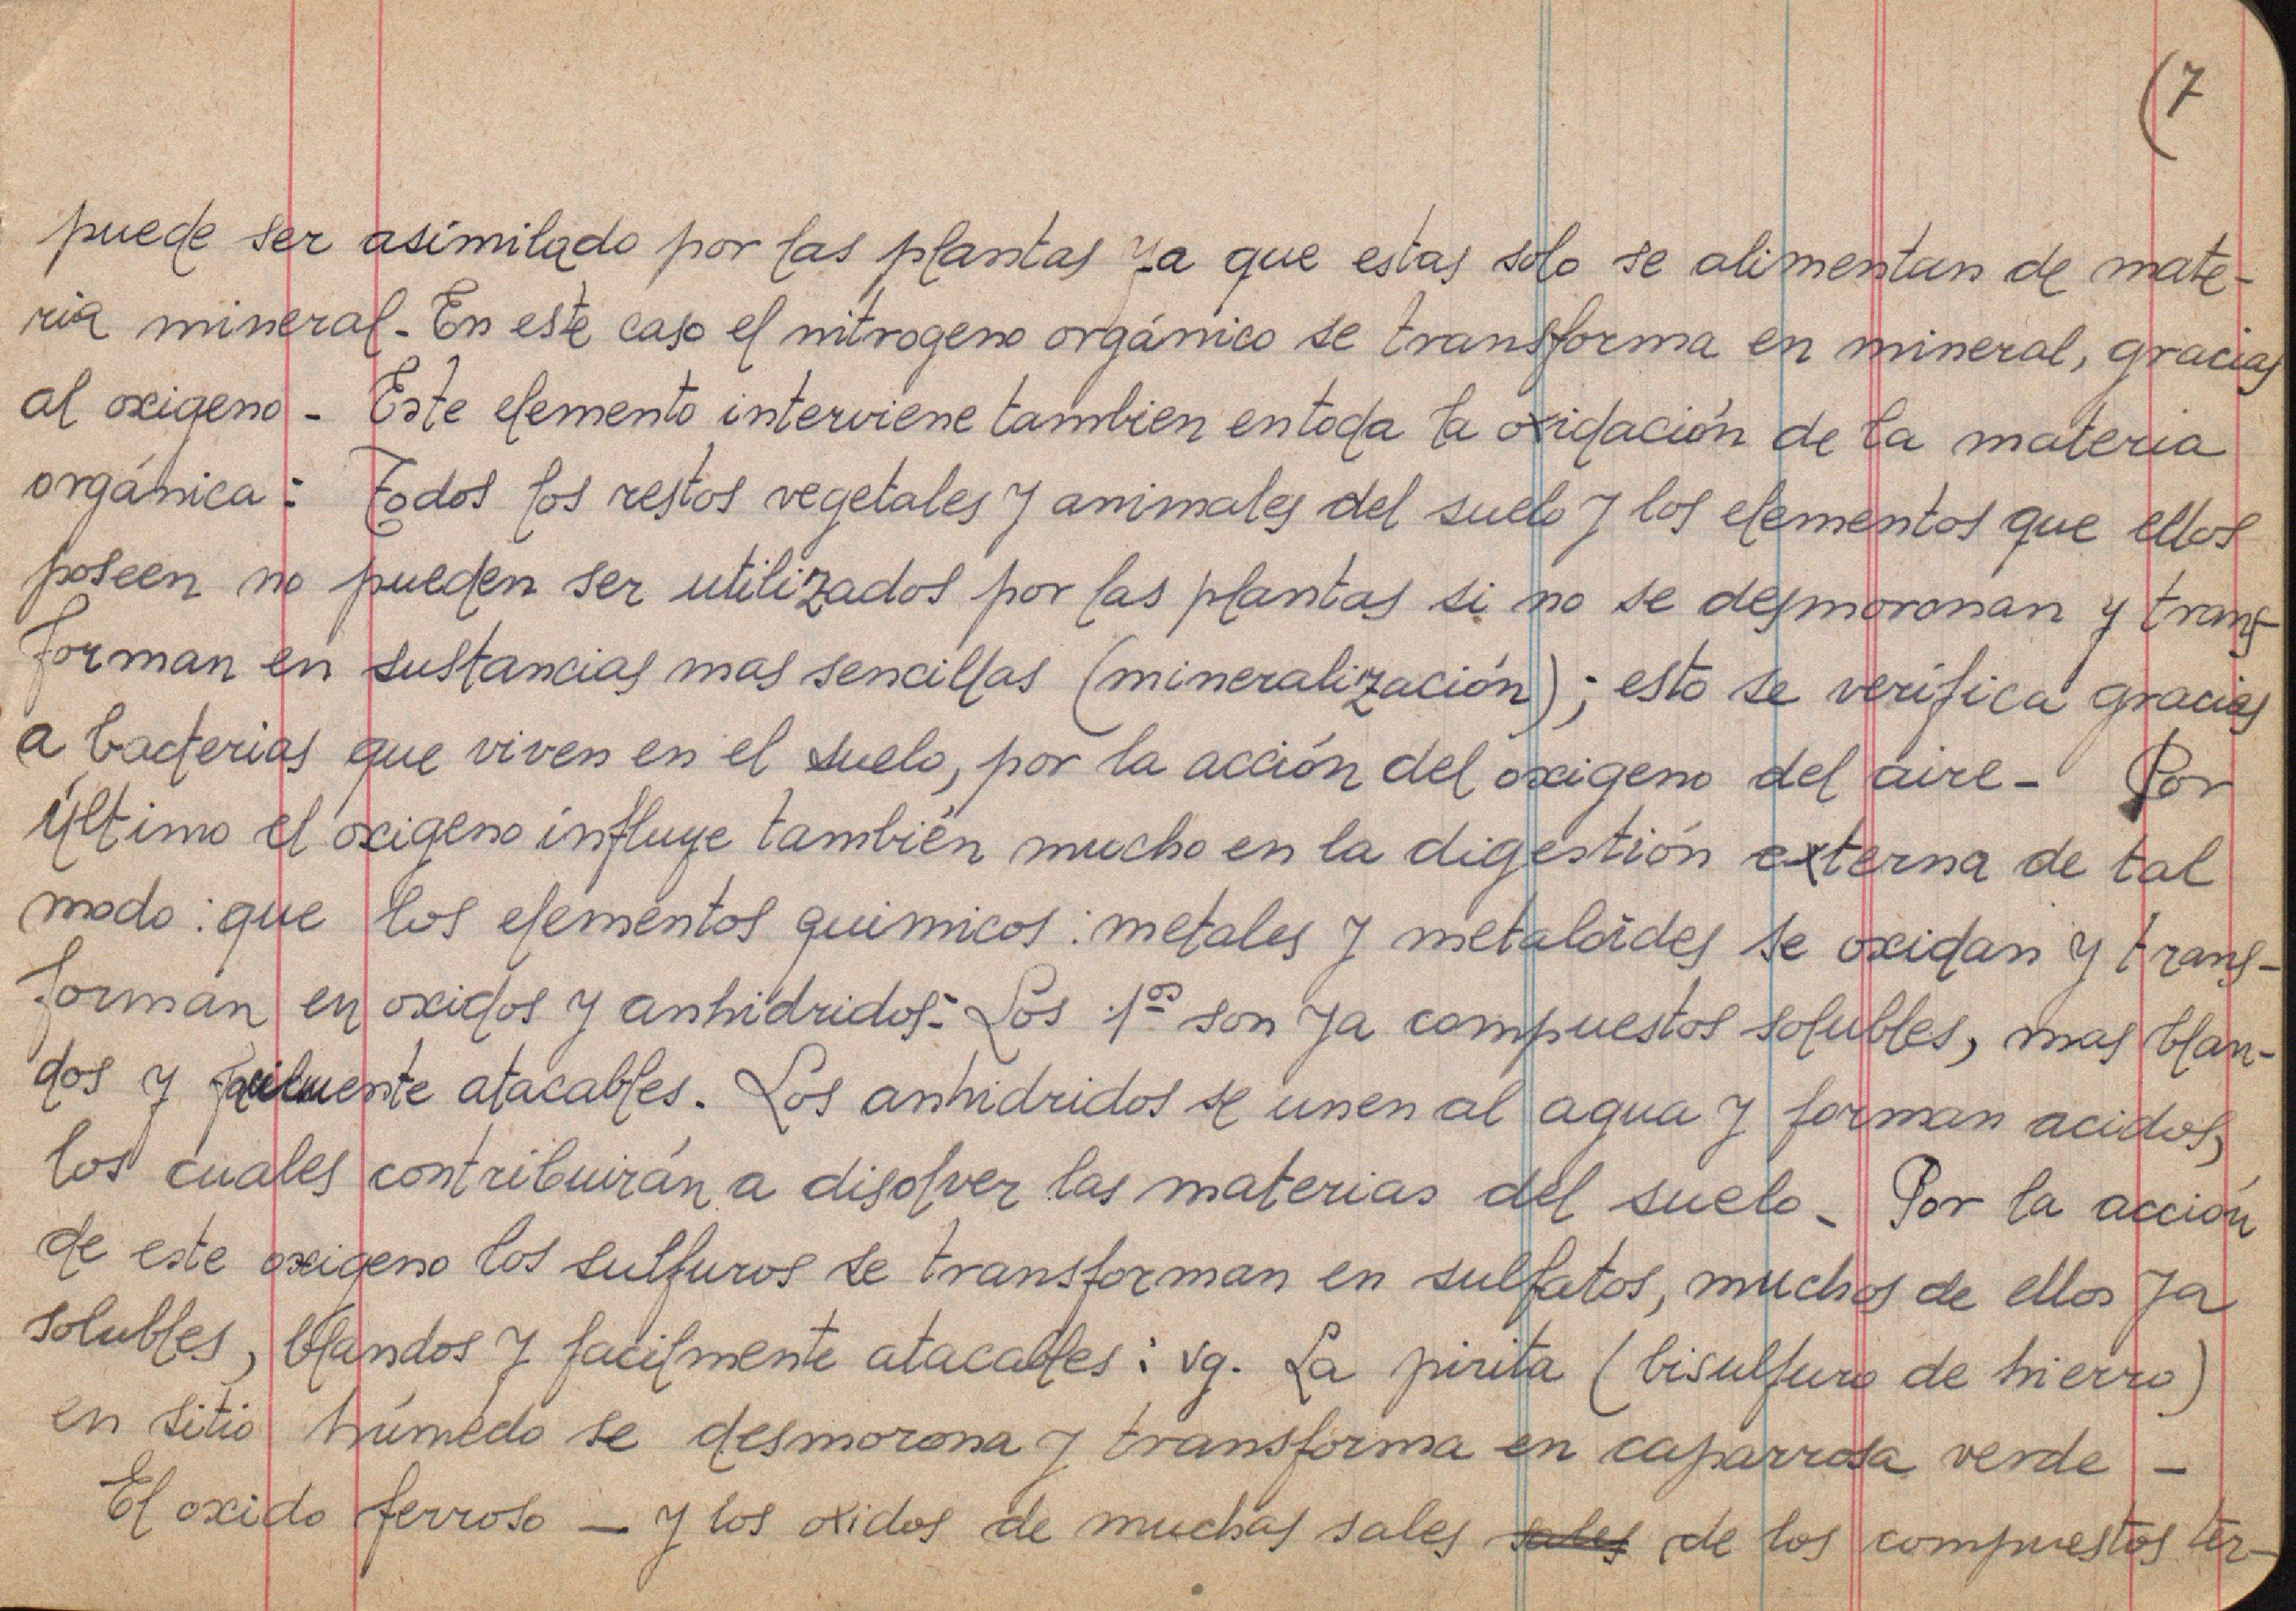 (7
puede ser asimilado por las plantas ya que estas solo se alimentan de mate-
ria mineral. En este caso el nitrogeno orgánico se transforma en mineral, gracias
al oxigeno - Este elemento interviene tambien en toda la oxidación de la materia
orgánica: Todos los restos vegetales y animales del suelo y los elementos que ellos
poseen no pueden ser utilizados por las plantas si no se desmoronan y trans-
forman en sustancias mas sencillas (mineralización); esto se verifica gracias
a bacterias que viven en el suelo, por la acción del oxigeno del aire - Por
último el oxigeno influye también mucho en la digestión externa de tal
modo: que los elementos quimicos: metales y metaloides se oxidan y trans-
forman en oxidos y anhidridos: Los 1os son ya compuestos solubles, mas blan-
dos y facilmente atacables. Los anhidridos se unen al agua y forman acidos,
los cuales contribuirán a disolver las materias del suelo - Por la acción
de este oxigeno los sulfuros se transforman en sulfatos, muchos de ellos ya
solubles, blandos y facilmente atacables: vg. La pirita (bisulfuro de hierro)
en sitio húmedo se desmorona y transforma en caparrosa verde -
El oxido ferroso - y los oxidos de muchas sales sales de los compuestos ter-